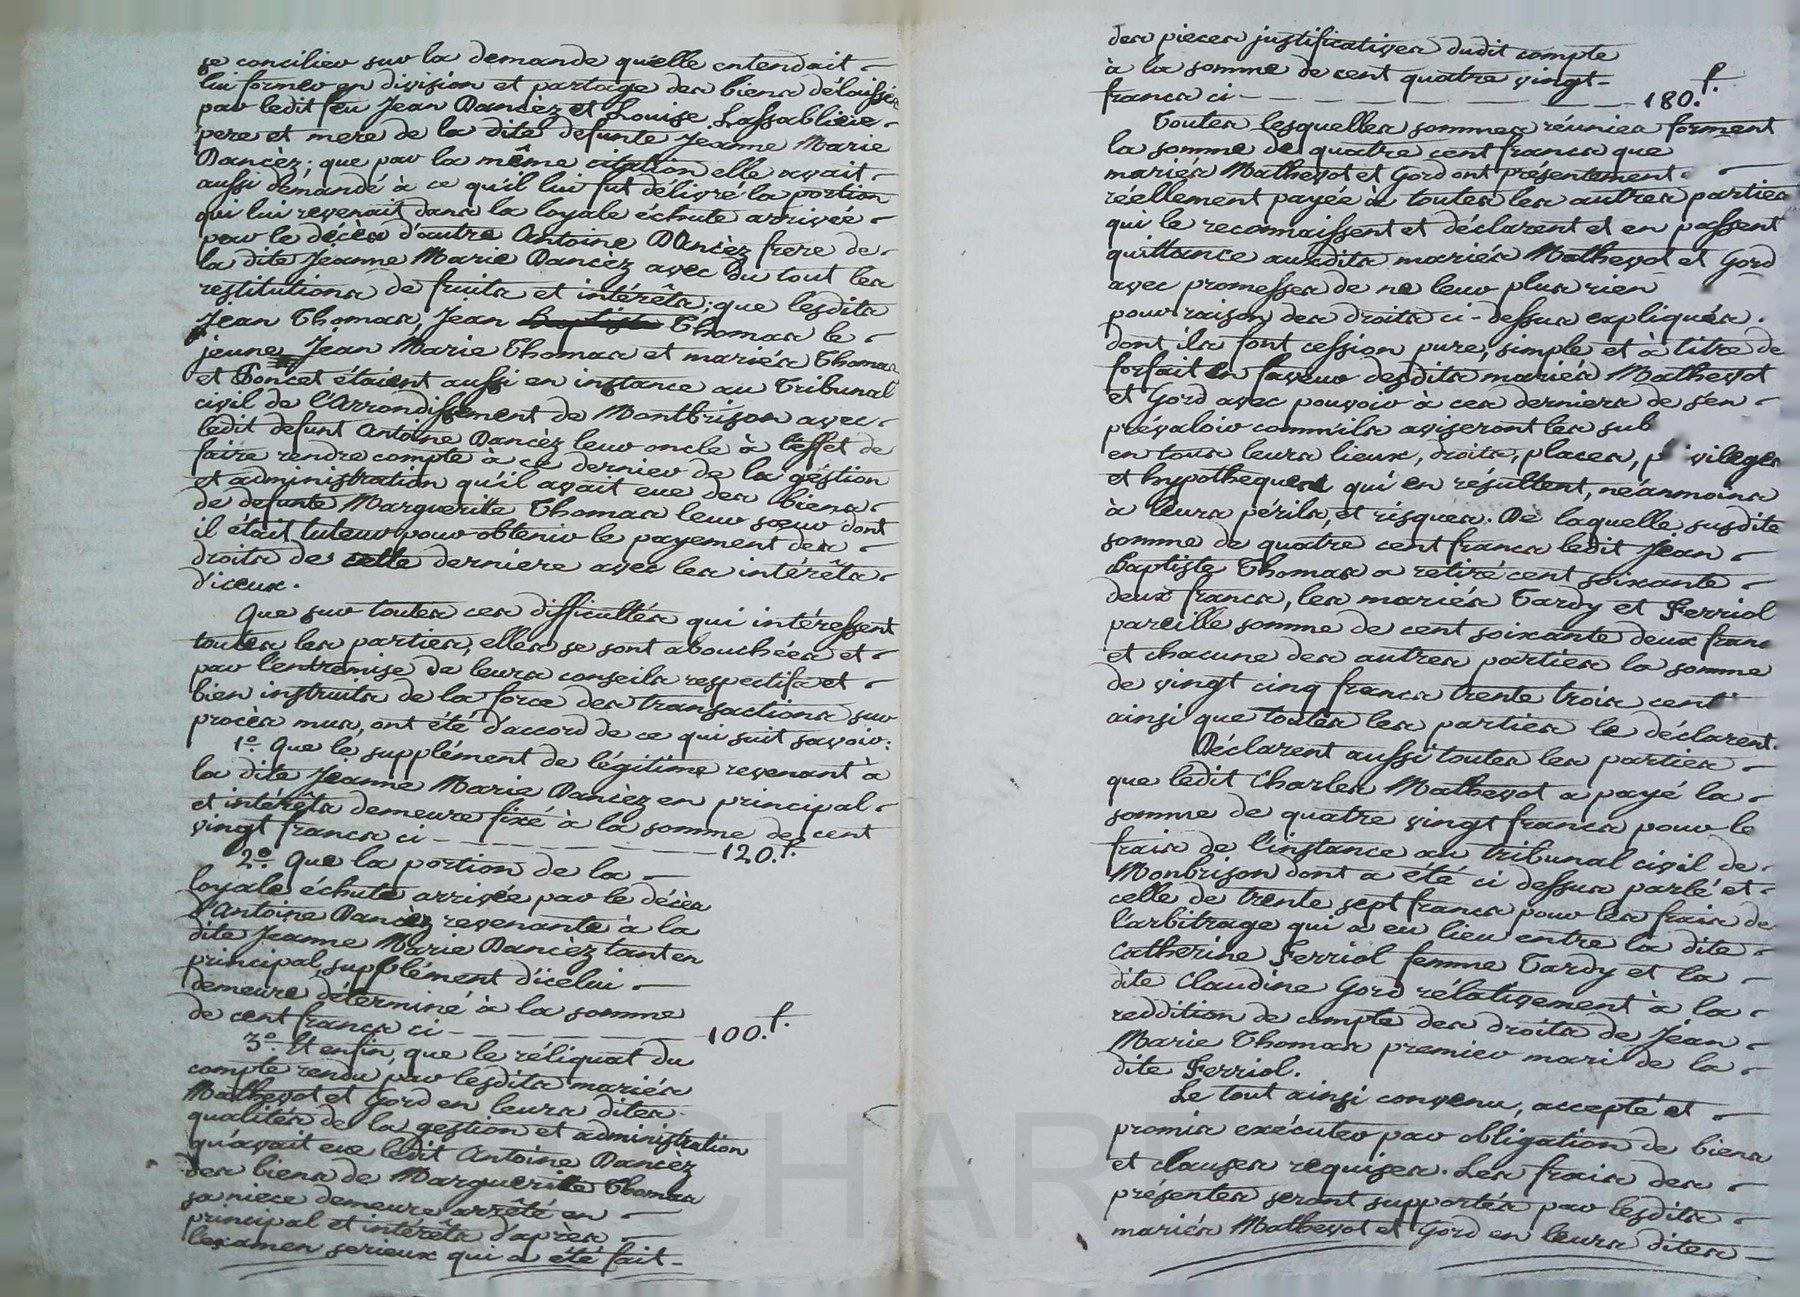 se concilier sur la demande qu'elle entendait
lui former en division et partage des biens délaissés
par ledit feu Jean Dancèz et Louise Lassablière
pere et mere de la dite defunte Jeanne Marie
Dancèz; que par la même citation elle avait
aussi démandé à ce qu'il lui fut délivré la portion
qui lui revenait dans la loyale échute arrivée
par le décès d'autre Antoine Dancèz frere de
la dite Jeanne Marie Dancèz avec du tout les
restitutions de fruits et intérêts; que lesdits
Jean Thomas, Jean Thomas le
jeune Jean Marie Thomas et mariés Thomas
et Poncet étaient aussi en instance au Tribunal
civil de l'Arrondissement de Montbrison avec
ledit defunt Antoine Dancèz leur oncle à l'effet de
faire rendre compte à ce dernier de la géstion
et administration qu'il avait eue des biens
de defunte Margueritte Thomas leur sœur dont
il était tuteur pour obtenir le payement des
droits de cette derniere avec les intérêts
d'iceux.
Que sur toutes ces difficultés qui intéressent
toutes les parties, elles se sont abouchées et
par l'entremise de leurs conseils respectifs et
bien instruits de la force des transactions sur
procès mus, ont été d'accord de ce qui suit savoir:
1.º Que le supplément de légitime revenant à
la dite Jeanne Marie Dancèz en principal
et intérêts demeure fixé à la somme de cent
vingt francs ci - 120.f.
2.º Que la portion de la
loyale échute arrivée par le décès
d'Antoine Dancèz revenante à la
dite Jeanne Marie Dancèz tant en
principal, supplément d'icelui
demeure déterminé à la somme
de cent francs ci - 100.f.
3.º Et enfin, que le réliquat du
compte rendu par lesdits mariés
Mathevot et Gord en leurs dites
qualités de la gestion et administration
qu'avait eue ledit Antoine Dancèz
des biens de Marguerite Thomas
sa niece demeure arrêté en
principal et intérêts d'après
l'examen serieux qui a été fait
des pieces justificatives dudit compte
à la somme de cent quatre vingt
francs ci - 180.f.
Toutes lesquelles sommes réunies forment
la somme de quatre cent francs que
mariés Mathevot et Gord ont présentement
réellement payée à toutes les autres parties
qui le reconnaissent et déclarent et en passent
quittance auxdits mariés Mathevot et Gord
avec promesses de ne leur plus rien
pour raison des droits ci-dessus expliqués.
dont ils font cession pure, simple et à titre de
forfait en faveur desdits mariés Mathevot
et Gord avec pouvoir à ces derniers de s'en
prévaloir comm'ils aviseront les sub
en tous leurs lieux, droits, places, p vileges
et hypotheques qui en résultent, néanmoins
à leurs périls, et risques. De laquelle susdite
somme de quatre cent francs ledit Jean
Baptiste Thomas a retiré cent soixante
deux francs, les mariés Tardy et Ferriol
pareille somme de cent soixante deux franc
et chacune des autres parties la somme
de vingt cinq francs trente trois cent
ainsi que toutes les parties le déclarent.
Déclarent aussi toutes les parties
que ledit Charles Mathevot a payé la
somme de quatre vingt francs pour le
frais de l'instance au tribunal civil de
Monbrison dont a été ci dessus parlé et
celle de trente sept francs pour les frais de
l'arbitrage qui a eu lieu entre la dite
Catherine Ferriol femme Tardy et la
dite Claudine Gord rélativement à la
reddition de compte des droits de Jean
Marie Thomas premier mari de la
dite Ferriol.
Le tout ainsi convenu, accepté et
promis exécuter par obligation de biens
et clauses requises. Les frais des
présentes seront supportés par lesdits
mariés Mathevot et Gord en leurs dites